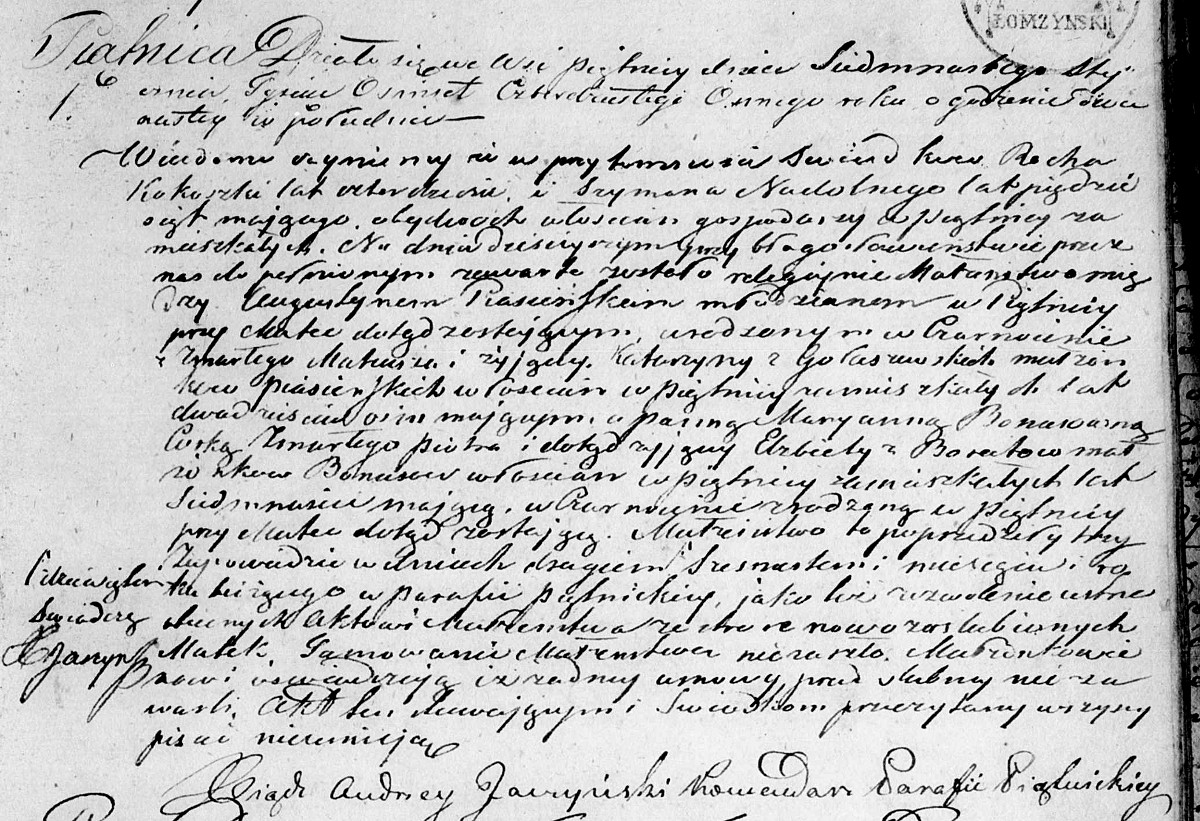 ŁOMZYŃSKI
Piątnica Działo się we Wsi Piątnicy dnia Siedmnastego Sty¬
1. cznia, Tysiąc Osmset Czterdziestego Osmego roku o godzinie dwu
nastey w południe —
Wiadomo czyniemy iż w przytomności Swiadkow Rocha
Kokoszki lat czterdzieści i Szymona Nadolnego lat pięćdzie
siąt mającego, obydwoch włościan gospodarzy w Piątnicy za
mieszkałych. Na dniu dzisieyszym przy błogosławieństwie przez
nas dopełnionym zawarte zostało religijne Małżeństwo mię
dzy Augustynem Piasieńskim młodzianem w Piątnicy
przy Matce dotąd zostającym, urodzonym w Czarnocinie
z Zmarłego Mateusza i żyjącey Katarzyny z Gołaszewskich małżon
kow Piasieńskich włościan w Piątnicy zamieszkałych lat
dwadzieścia ośm mającym, a panną Maryanną Bonusową
Corką Zmarłego Piotra i dotąd żyjącey Elżbiety z Boratow mał
żonkow Bonusow włościan w Piątnicy zamieszkałych lat
Siedmnaście mającą, w Czarnocinie zrodzoną w Piątnicy
przy Matce dotąd zostającą. Małżeństwo to poprzedziły trzy
Zapowiedzie w dniach drugiem Szesnastem miesiąca i ro
ku bieżącego w parafii Piątnickiey, jako też zezwolenie ustne
obecnych Aktowi Małżeństwa ze strony nowozaślubionych
Matek. Tamowanie Małżeństwa nie zaszło. Małżonkowie
nowi oswiadczają iż żadney umowy przed slubney nie za
warli. Akt ten stawającym i Swiadkom przeczytany wszyscy
pisać nieumieją
i dziewiątem
Swiadczę
X Jarzyń
Xiądz Andrzey Jarzyński Komendarz Parafii Piątnickiey